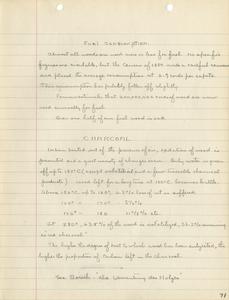 Fuel Consumption.
Almost all woods are used more or less for fuel. No specific
figures are available, but the Census of 1880 made a careful canvass
and placed the average consumption at 2.9 cords per capita.
This consumption has probably fallen off slightly.
Conservative estimate that 200,000,000 cords of wood are now
used annually for fuel.
Over one half of our wood is oak.
CHARCOAL.
When heated out of the presence of air, oxidation of wood is
prevented and a great variety of changes occur. Only water is given
off up to 150°C (except volatilized and a few traceable chemical
products). Wood left for a long time at 100°C becomes brittle.
Above 150°C, up to 160°, 2% loss of wt. is suffered.
160° - 170°
170° - 180° 11%
At 280°, 63.8% of the wood is volatilized, 36.2% remaining
is red charcoal.
The higher the degree of heat to which wood has been subjected, the
higher the proportion of Carbon left in the charcoal.
See Bersch "Die Verwertung des Holzes"
71